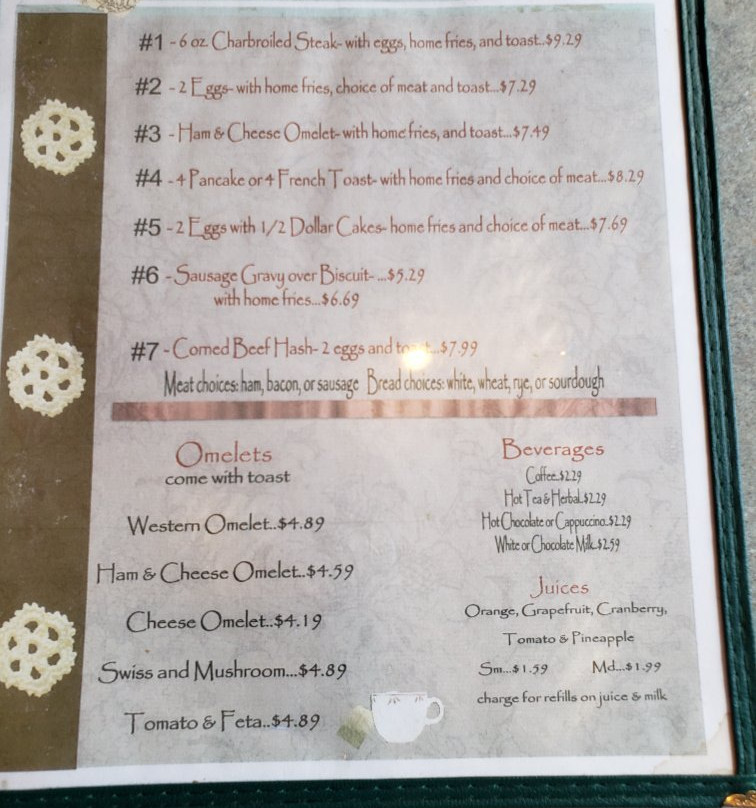 #1 - 6 oz. Charbroiled Steak- with eggs, home fries, and toast..$9.29
#2 - 2 Eggs- with home fries, choice of meat and toast...$7.29
#3 - Ham & Cheese Omelet- with home fries, and toast...$7.49
#4 - 4 Pancake or 4 French Toast- with home fries and choice of meat...$8.29
#5 - 2 Eggs with 1/2 Dollar Cakes- home fries and choice of meat...$7.69
#6 - Sausage Gravy over Biscuit- ...$5.29
with home fries...$6.69
#7 - Corned Beef Hash- 2 eggs and toast...$7.99
Meat choices: ham, bacon, or sausage Bread choices: white, wheat, rye, or sourdough
Omelets
come with toast
Western Omelet..$4.89
Ham & Cheese Omelet..$4.59
Cheese Omelet..$4.19
Swiss and Mushroom...$4.89
Tomato & Feta..$4.89
Beverages
Coffee..$2.29
Hot Tea & Herbal..$2.29
Hot Chocolate or Cappuccino..$2.29
White or Chocolate Milk..$2.59
Juices
Orange, Grapefruit, Cranberry,
Tomato & Pineapple
Sm...$1.59 Md...$1.99
charge for refills on juice & milk